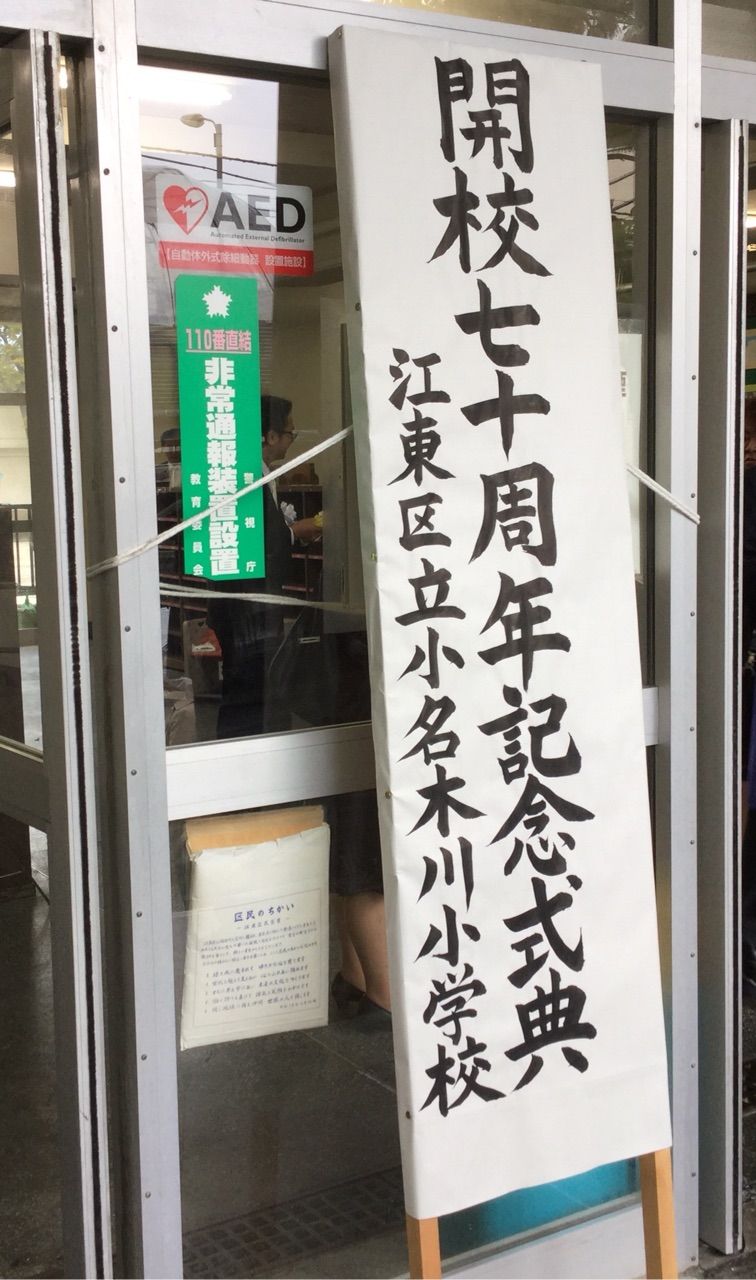 開校七十周年記念式典
江東区立小名木川小学校
AED
Automated External Defibrillator
【自動体外式除細動器 設置施設】
110番直結
非常通報装置設置
警視庁
教育委員会
区民のちかい